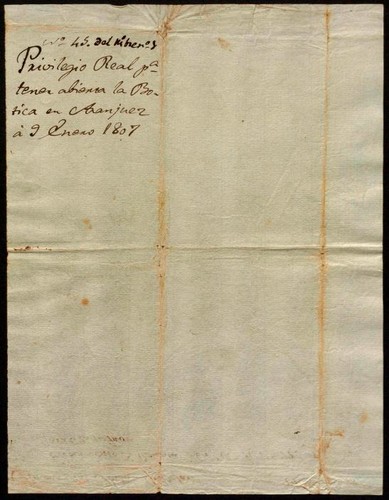 Nº 45. del
Privilegio Real pª
tener abierta la Bo-
tica en Aranjuez
à 9 Enero 1807